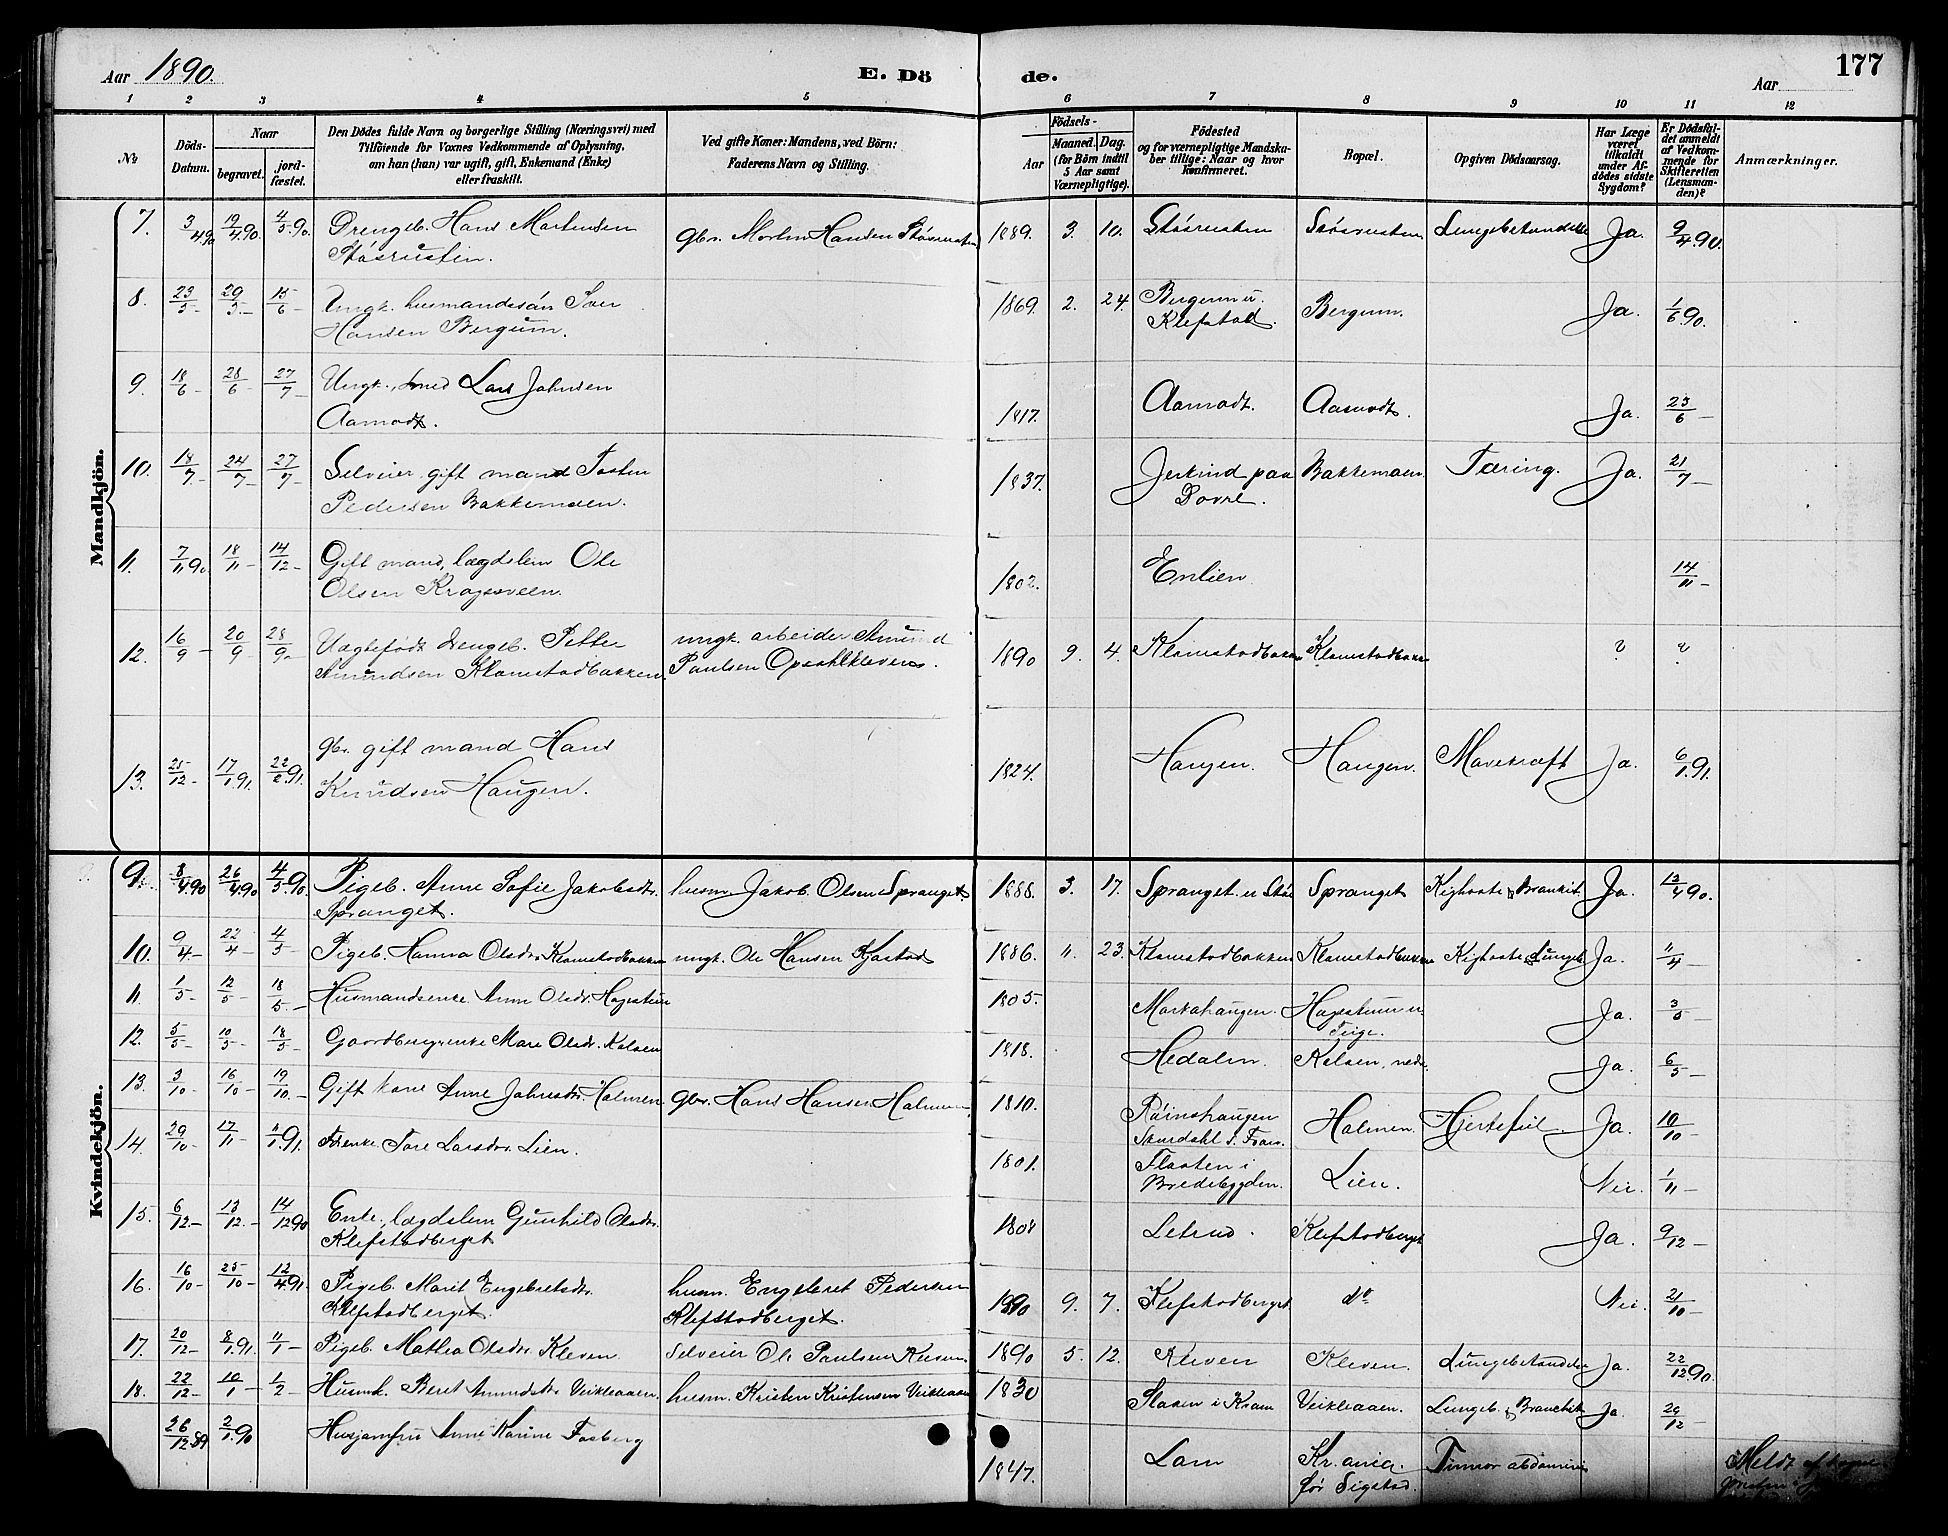 Aar 1890.
E. Dö
de.
Aar
177
1 2 3 4 5 6 7 8 9 10 11 12
No
Döds-Datum.
Naar
begravet.
jord-fæstet.
Den Dödes fulde Navn og borgerlige Stilling (Næringsvei) med
Tilföiende for Voxnes Vedkommende af Oplysning,
om han (hun) var ugift, gift, Enkemand (Enke)
eller fraskilt.
Ved gifte Koner: Mandens, ved Börn:
Faderens Navn og Stilling.
Födsels-
Aar
Maaned. Dag.
(for Börn indtil
5 Aar samt
Værnepligtige).
Födested
og for værnepligtige Mandska-
ber tillige: Naar og hvor
konfirmeret.
Bopæl.
Opgiven Dödsaarsag.
Har Læge
været
tilkaldt
under Af-
dödes sidste
Sygdom?
Er Dödsfal-
det anmeldt
af Vedkom-
mende for
Skifteretten
(Lensman-
den)?
Anmærkninger.
Mandkjön.
7. 3/4 90 19/4 90. 4/5 90. Drengeb. Hans Martensen
Stösrusten. gbr. Morten Hansen Stösrusten 1889. 3. 10. Stösrusten Stösrusten Lungebetændelse Ja. 9/4 90.
8. 23/5 - 29/5 - 15/6 - Ungk. husmandssön Iver
Hansen Bergum. 1869. 2. 24. Bergum u.
Klefstad. Bergum. Ja. 1/6 90.
9. 18/6 - 28/6 - 27/7 - Ungk., smed Lars Johnsen
Aamodt. 1817. Aamodt. Aamodt. Ja. 23/6 -
10. 18/7 - 24/7 - 27/7 - Selveier, gift mand Tosten
Pedersen Bakkemoen. 1837. Jerkind paa
Dovre. Bakkemoen. Tæring. Ja. 21/7 -
11. 7/11 90. 18/11 - 14/12 - Gift mand, lægdslem Ole
Olsen Kragesveen. 1802. Enlien. 14/11 -
12. 16/9 - 20/9 - 28/9 - Uægtefödt drengeb. Petter
Amundsen Klomstadbakken. ungk. arbeider Amund
Paulsen Opsahlkleven. 1890 9. 4. Klomstadbakken Klomstadbakken ? ?
13. 25/12 - 17/1 91. 22/2 91. gbr. gift mand Hans
Knudsen Haugen. 1824. Haugen. Haugen. Mavekræft Ja. 6/1 91.
Kvindekjön.
9. 8/4 90 26/4 90 4/5 90. Pigeb. Anne Sofie Jakobsdtr.
Spranget. husm Jakob Olsen Spranget. 1888. 3. 17. Spranget u. Spranget Kighoste & Bronkit Ja. 13/4 90.
10. 9/4 - 22/4 - 4/5 - Pigeb. Hanna Olsdtr. Klomstadbakken ungk. Ole Hansen Kjøstad 1886. 11. 23. Klomstadbakken Klomstadbakken Kighoste & Lungeb. Ja. 11/4 -
11. 1/5 - 12/5 - 18/5 - Husmandsenke Anne Olsdtr. Hagestuen 1805. Morkahaugen. Hagestuen u.
Teige. Ja. 3/5 -
12. 5/5 - 10/5 - 18/5 - Gaardbrugerenke Mari Olsdtr. Kolsen 1818. Hedalen. Kolsen, nedr. Ja. 6/5 -
13. 3/10 - 16/10 - 19/10 - Gift kone Anne Johnsdtr. Holmen gbr. Hans Hansen Holmen 1810. Röinshaugen
Skurdahl S. Fron. Holmen. Hjertefeil Ja. 10/10 -
14. 29/10 - 17/11 - 11/1 91. Fdenke Tore Larsdtr. Lien. 1801. Flaaten i
Bredebygden. Lien. Nei. 1/11 -
15. 6/12 - 13/12 - 14/12 90 Enke, lægdslem Gunhild Olsdtr.
Klefstadberget 1808 Letrud. Klefstadberget Ja. 9/12 -
16. 16/10 - 25/10 - 12/4 91. Pigeb. Marit Engebretsdtr.
Klefstadberget. husm. Engebret Pedersen
Klefstadberget. 1890 9. 7. Klefstadberget do Nei. 21/10 -
17. 20/12 - 8/1 91. 11/1 - Pigeb. Mathea Olsdtr. Kleven selveier Ole Paulsen 1890 5. 12. Kleven Kleven. Lungebetændelse Ja. 22/12 90.
18. 22/12 - 10/1 - 1/2 - Husmk. Beret Amundsdtr. Veikleaaen. husm. Kristen Kristensen Veikleaaen 1830 Slaaen i Kvam Veikleaaen. Lungeb. & Bronchit Ja. 29/12 -
26/12 89 2/1 90 Husjomfru Anne Karine Fosberg 1847. Lom Kr.ania.
för Sigstad. Tumor abdominis Meldt af